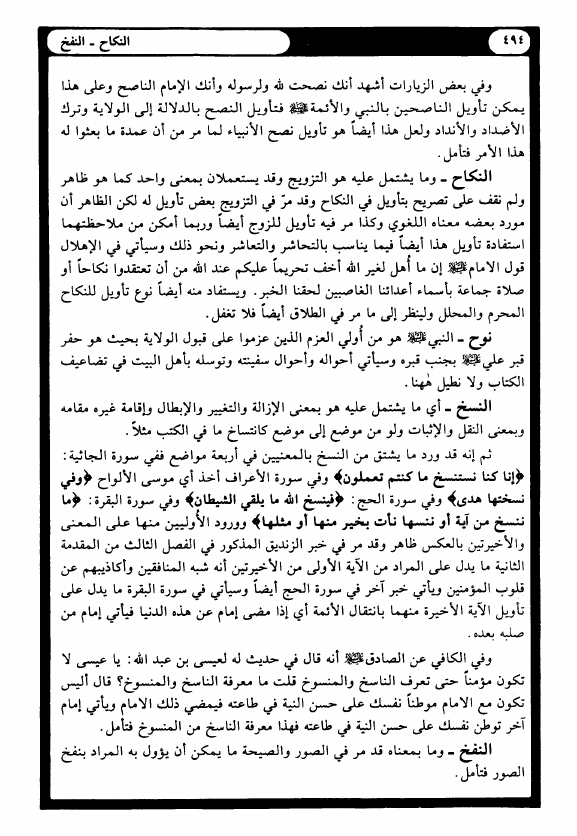 ٤٩٤
النكاح ـ النفخ
وفي بعض الزيارات أشهد أنك نصحت لله ولرسوله وأنك الإمام الناصح وعلى هذا
يمكن تأويل الناصحين بالنبي والأئمة ﷺ فتأويل النصح بالدلالة إلى الولاية وترك
الأضداد والأنداد ولعل هذا أيضاً هو تأويل نصح الأنبياء لما مر من أن عمدة ما بعثوا له
هذا الأمر فتأمل.
النكاح ـ وما يشتمل عليه هو التزويج وقد يستعملان بمعنى واحد كما هو ظاهر
ولم نقف على تصريح بتأويل في النكاح وقد مرّ في التزويج بعض تأويل له لكن الظاهر أن
مورد بعضه معناه اللغوي وكذا مر فيه تأويل للزوج أيضاً وربما أمكن من ملاحظتهما
استفادة تأويل هذا أيضاً فيما يناسب بالتحاشر والتعاشر ونحو ذلك وسيأتي في الإهلال
قول الامام ﷺ إن ما أُهل لغير الله أخف تحريماً عليكم عند الله من أن تعتقدوا نكاحاً أو
صلاة جماعة بأسماء أعدائنا الغاصبين لحقنا الخبر. ويستفاد منه أيضاً نوع تأويل للنكاح
المحرم والمحلل ولينظر إلى ما مر في الطلاق أيضاً فلا تغفل.
نوح ـ النبي ﷺ هو من أُولي العزم الذين عزموا على قبول الولاية بحيث هو حفر
قبر علي ﷺ بجنب قبره وسيأتي أحواله وأحوال سفينته وتوسله بأهل البيت في تضاعيف
الكتاب ولا نطيل لههنا.
النسخ ـ أي ما يشتمل عليه هو بمعنى الإزالة والتغيير والإبطال وإقامة غيره مقامه
وبمعنى النقل والإثبات ولو من موضع إلى موضع كانتساخ ما في الكتب مثلاً.
ثم إنه قد ورد ما يشتق من النسخ بالمعنيين في أربعة مواضع ففي سورة الجاثية:
﴿إنا كنا نستنسخ ما كنتم تعملون﴾ وفي سورة الأعراف أخذ أي موسى الألواح ﴿وفي
نسختها هدى﴾ وفي سورة الحج: ﴿فينسخ الله ما يلقي الشيطان﴾ وفي سورة البقرة: ﴿ما
ننسخ من آية أو ننسها نأت بخير منها أو مثلها﴾ وورود الأُوليين منها على المعنى
والأخيرتين بالعكس ظاهر وقد مر في خبر الزنديق المذكور في الفصل الثالث من المقدمة
الثانية ما يدل على المراد من الآية الأولى من الأخيرتين أنه شبه المنافقين وأكاذيبهم عن
قلوب المؤمنين ويأتي خبر آخر في سورة الحج أيضاً وسيأتي في سورة البقرة ما يدل على
تأويل الآية الأخيرة منهما بانتقال الأئمة أي إذا مضى إمام عن هذه الدنيا فيأتي إمام من
صلبه بعده.
وفي الكافي عن الصادق ﷺ أنه قال في حديث له لعيسى بن عبد الله: يا عيسى لا
تكون مؤمناً حتى تعرف الناسخ والمنسوخ قلت ما معرفة الناسخ والمنسوخ؟ قال أليس
تكون مع الامام موطناً نفسك على حسن النية في طاعته فيمضي ذلك الامام ويأتي إمام
آخر توطن نفسك على حسن النية في طاعته فهذا معرفة الناسخ من المنسوخ فتأمل.
النفخ ـ وما بمعناه قد مر في الصور والصيحة ما يمكن أن يؤول به المراد بنفخ
الصور فتأمل.